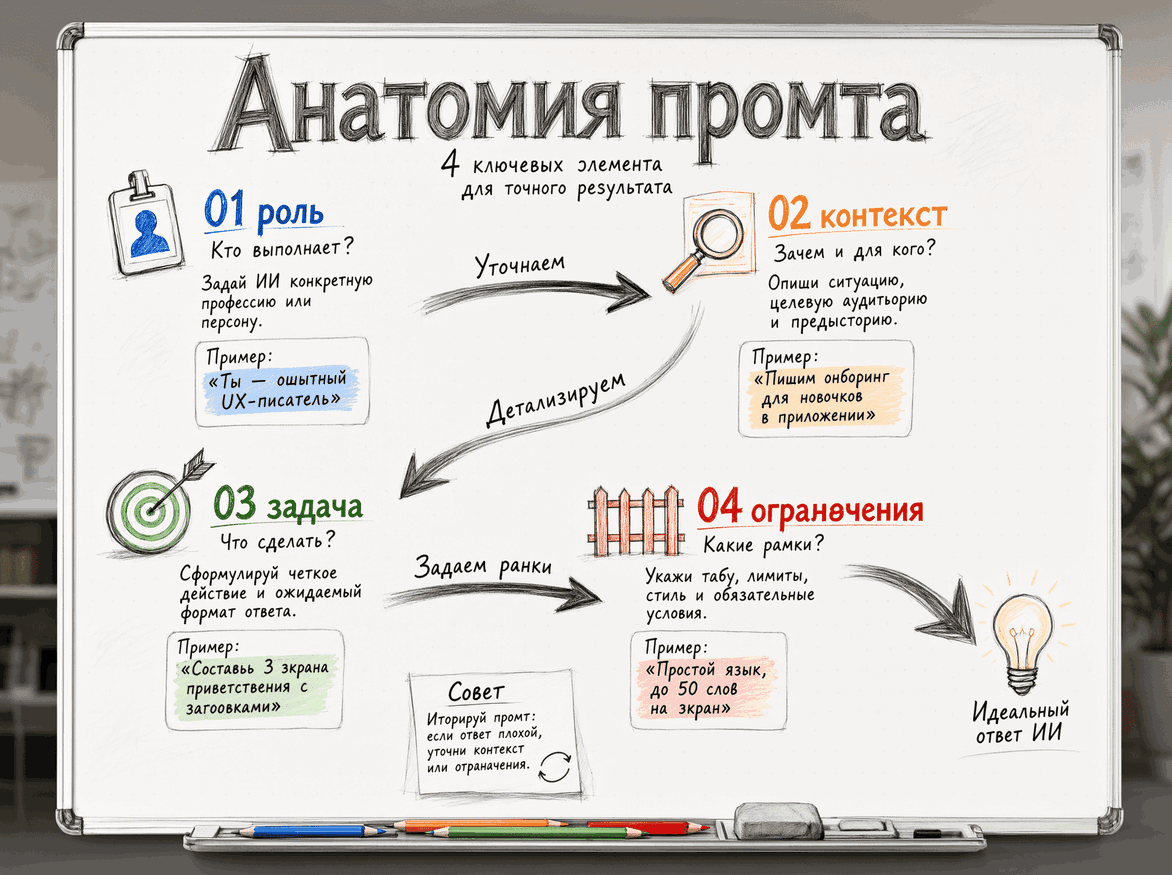 Анатомия промта
4 ключевых элемента
для точного результата
01 роль
Кто выполнает?
Задай ИИ конкретную
профессию или
персону.
Пример:
«Ты — ошытный
UX-писатель»
Уточнаем
02 контекст
Зачем и для кого?
Опиши ситуацию,
целевую аудитьорию
и предысторию.
Пример:
«Пишим онборинг
для новочков
в приложении»
Детализируем
03 задача
Что сделать?
Сформулируй четкое
действие и ожидаемый
формат ответа.
Пример:
«Составьь 3 зкрана
приветствения с
загоовками»
Задаем ранки
04 огранөчения
Какие рамки?
Укажи табу, лимиты,
стиль и обязательные
условия.
Пример:
«Простой язык,
до 50 слов
на зкран»
Совет
Иторируй промт:
если ответ плохой,
уточни контекст
или отраначения.
Идеальный
ответ ИИ